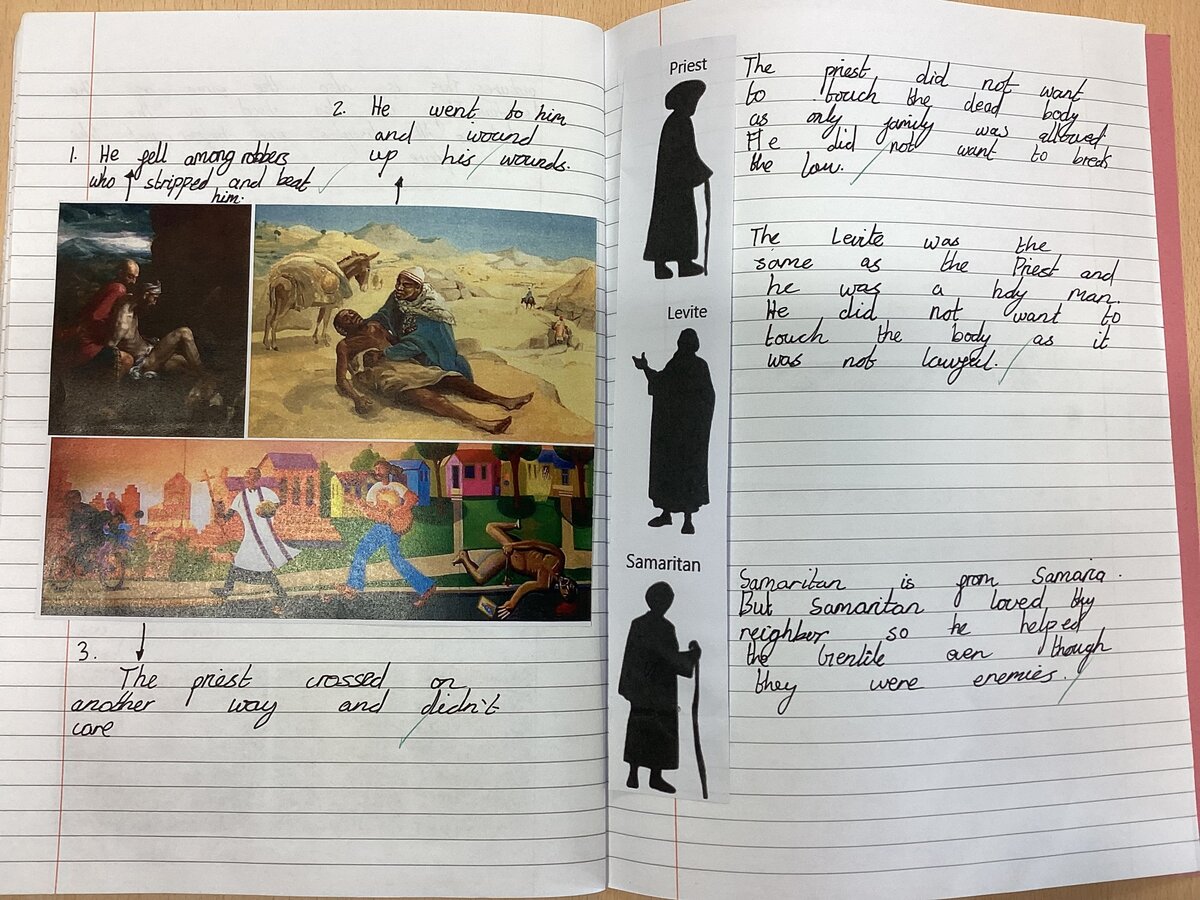 2. He went to him
and wound
up his wounds.
1. He fell among robbers
who stripped and beat
him.
3.
The priest crossed on
another way and didn't
care
Priest
The priest did not want
to touch the dead body
as only family was allowed.
He did not want to break
the law.
Levite
The Levite was the
same as the Priest and
he was a holy man.
He did not want to
touch the body as it
was not lawful.
Samaritan
Samaritan is from Samaria.
But Samaritan loved thy
neighbor so he helped
the Gentile even though
they were enemies.